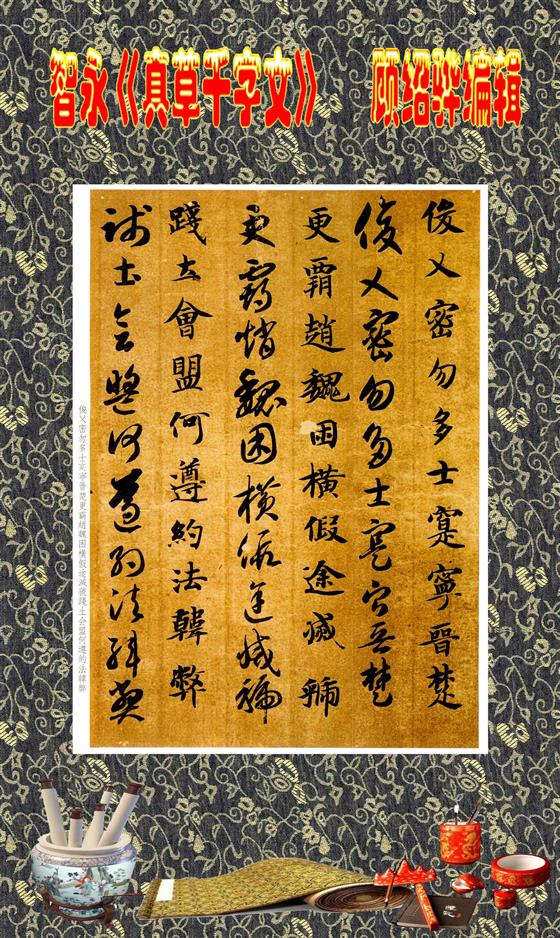 智永《真草千字文》　顾绍骅编辑
俊乂密勿多士寔寧晉楚
俊乂密勿多士寔宁晋楚
更霸趙魏困橫假途滅虢
更霸趙魏困横假途滅虢
踐土會盟何遵約法韓弊
践土会盟何遵約法韓弊
俊乂密勿多士寔寧晉楚更霸趙魏困橫假途滅虢踐土会盟何遵約法韓弊